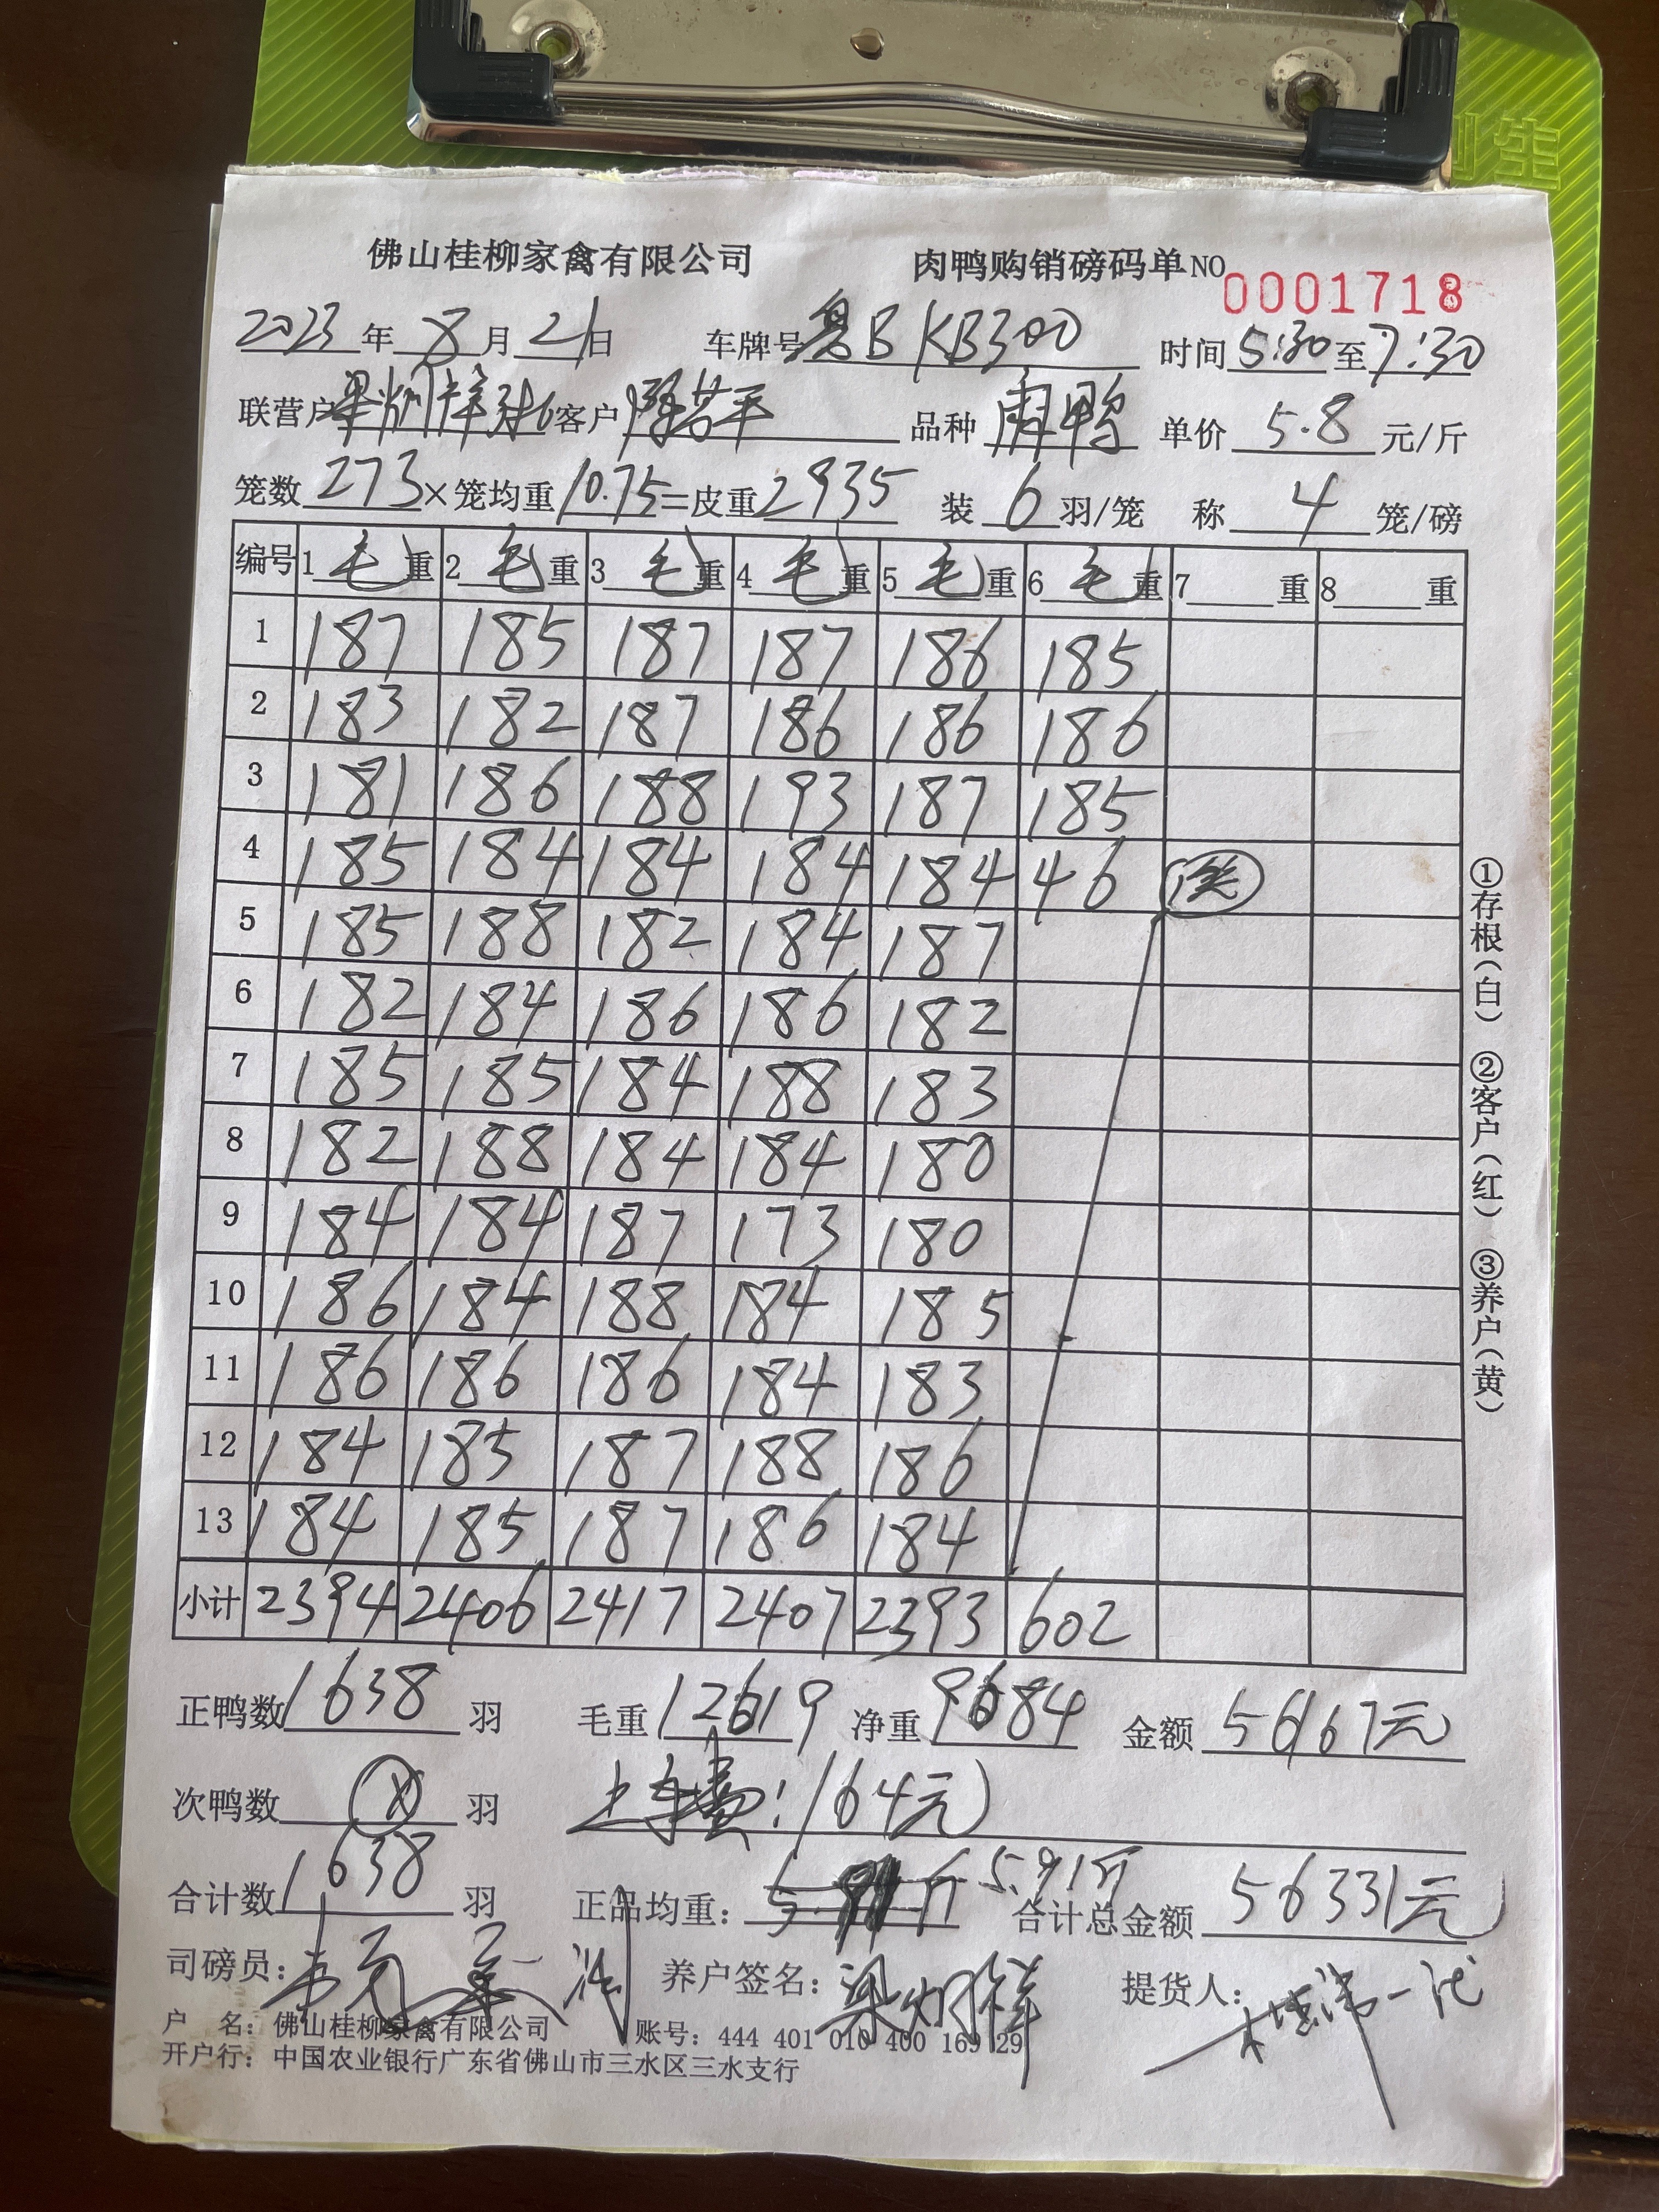 佛山桂柳家禽有限公司 肉鸭购销磅码单 NO 0001718
2023年8月21日 车牌号 粤BKB300 时间 5:30至7:30
联营户 客户 品种 单价 5.8 元/斤
笼数 273×笼均重 10.75=皮重 2935 装 6 羽/笼 称 4 笼/磅
编号 1 毛 重 2 毛 重 3 毛 重 4 毛 重 5 毛 重 6 毛 重 7 重 8 重
1 187 185 187 187 186 185
2 183 182 187 186 186 186
3 181 186 188 193 187 185
4 185 184 184 184 184 46
5 185 188 182 184 187
6 182 184 186 186 182
7 185 185 184 188 183
8 182 188 184 184 180
9 184 184 187 173 180
10 186 184 188 184 185
11 186 186 186 184 183
12 184 185 187 188 186
13 184 185 187 186 184
小计 2394 2406 2417 2407 2393 602
正鸭数 1638 羽 毛重 12619 净重 9684 金额 56167元
次鸭数 羽 上车费:164元
合计数 1638 羽 正品均重: 5.91斤 合计总金额 56331元
司磅员: 养户签名: 梁炳祥 提货人:
户 名: 佛山桂柳家禽有限公司 账号: 444 401 010 400 169 29
开户行: 中国农业银行广东省佛山市三水区三水支行
①存根(白) ②客户(红) ③养户(黄)